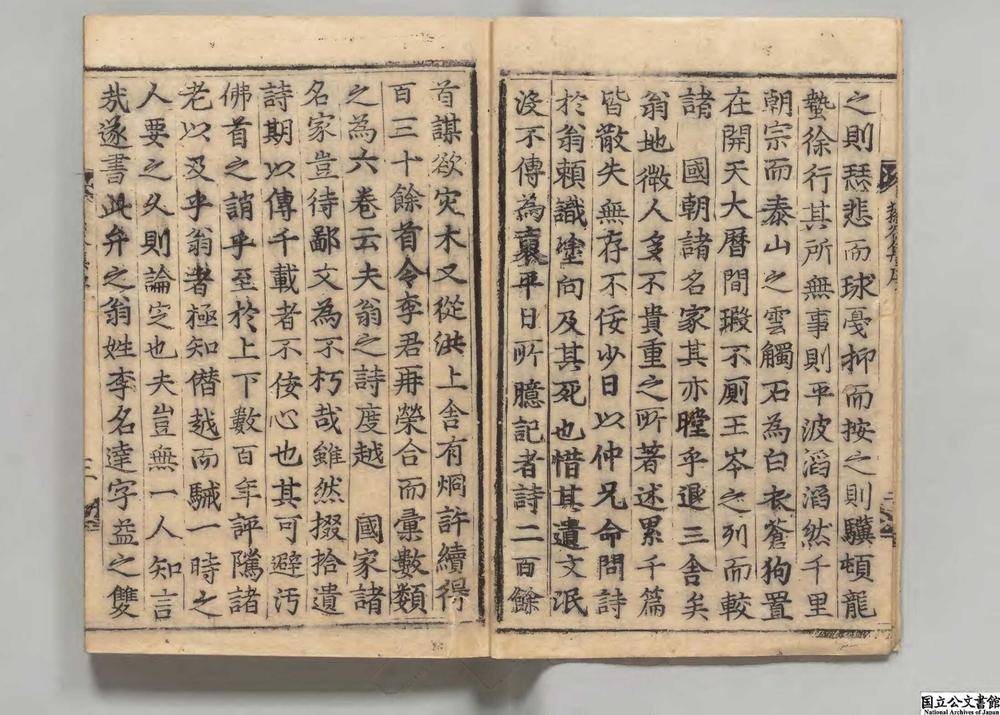 之則瑟悲而球戛抑而按之則驥頓龍
蟄徐行其所無事則平波滔滔然千里
朝宗而泰山之雲觸石為白衣蒼狗置
在開天大曆間瑕不厠王岑之列而較
諸　國朝諸名家其亦瞠乎退三舍矣
翁地微人多不貴重之所著述累千篇
皆散失無存不佞少日以仲兄命問詩
於翁頼識塗向及其死也惜其遺文泯
沒不傳為裒平日所臆記者詩二百餘
首謀欲灾木又從洪上舍有炯許續得
百三十餘首令李君再榮合而彙數類
之為六卷云夫翁之詩度越　國家諸
名家豈待鄙文為不朽哉雖然掇拾遺
詩期以傳千載者不侫心也其可避汚
佛首之誚乎至於上下數百年評隲諸
老以及乎翁者極知僭越而駴一時之
人要之久則論定也夫豈無一人知言
哉遂書此弁之翁姓李名達字益之雙
国立公文書館
National Archives of Japan